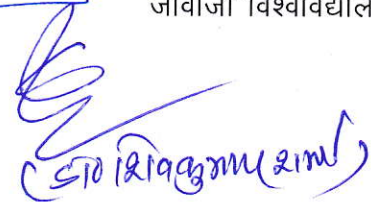 जीवाजी विश्वविद्याल
(डॉ० शिवकुमार शर्मा)